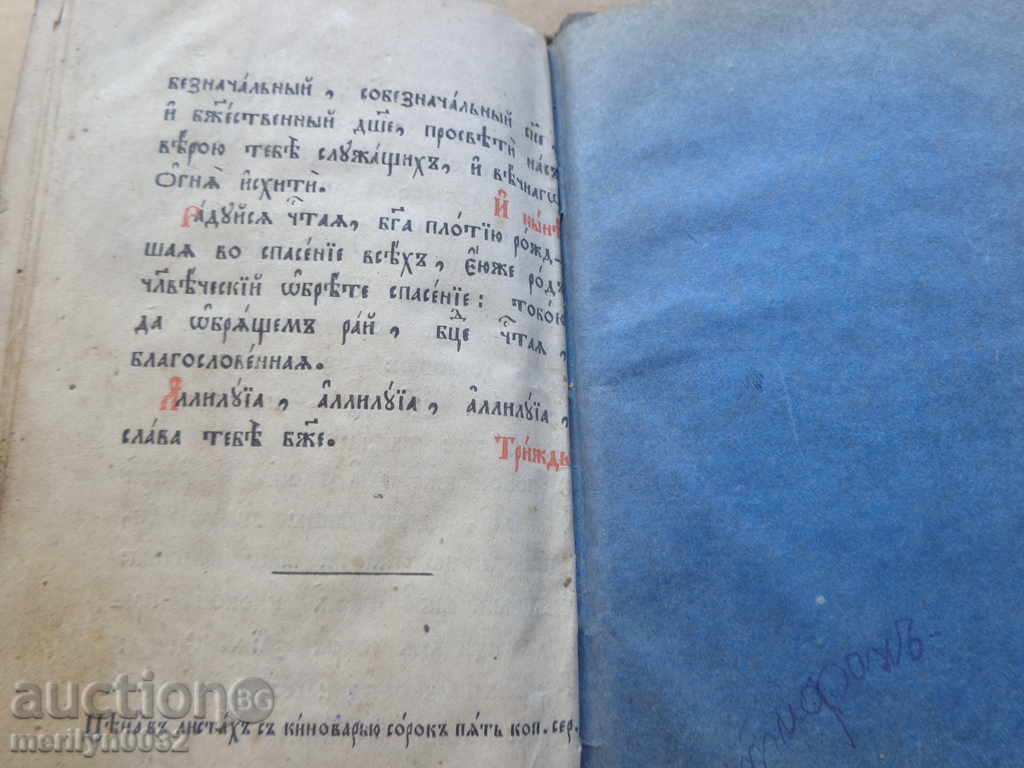 безнача́льный, собезнача́льный сн҃е,
и҆ бж҃е́ственный дш҃е, просвѣтѝ на́съ
вѣ́рою тебѣ̀ слꙋжа́щихъ, и҆ вѣ́чнагѡ
ѻ҆гнѧ̀ и҆схитѝ.
И҆ ны́нѣ
Ра́дꙋйсѧ чⷭ҇таѧ, бг҃а пло́тїю ро́жд-
шаѧ во спасе́нїе всѣ́хъ, е҆ю́же ро́дъ
чл҃вѣ́ческїй ѡ҆брѣ́те спасе́нїе: тобо́ю
да ѡ҆брѧ́щемъ ра́й, бцⷣе чⷭ҇таѧ,
благослове́ннаѧ.
А҆ллилꙋ́їа, а҆ллилꙋ́їа, а҆ллилꙋ́їа,
сла́ва тебѣ̀ бж҃е.
Три́жды
Цѣна̀ въ листа́хъ съ ки́новарью со́рок пѧ́ть коп. сер.
auction BG
merilyn0032